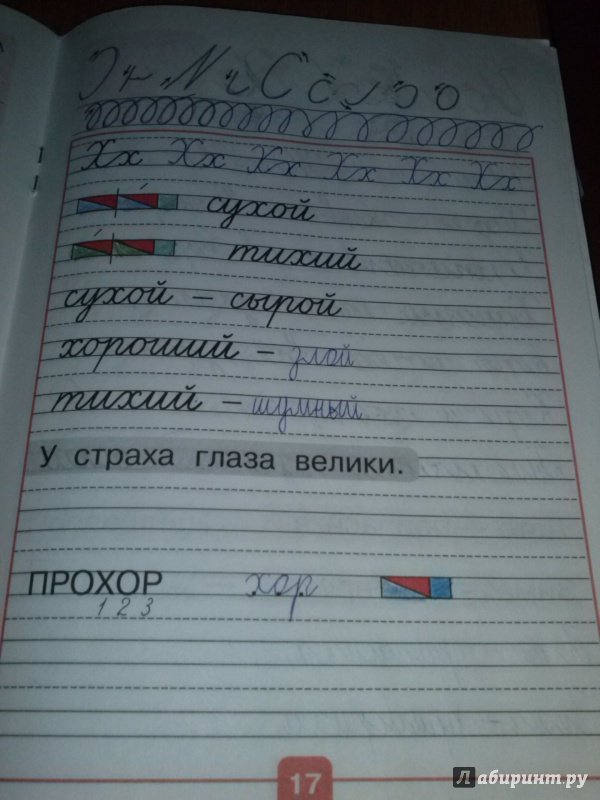 Хх Хх Хх Хх Хх Хх
сухой
тихий
сухой – сырой
хороший – злой
тихий – шумный
У страха глаза велики.
ПРОХОР хор
1 2 3
17
Лабиринт.ру